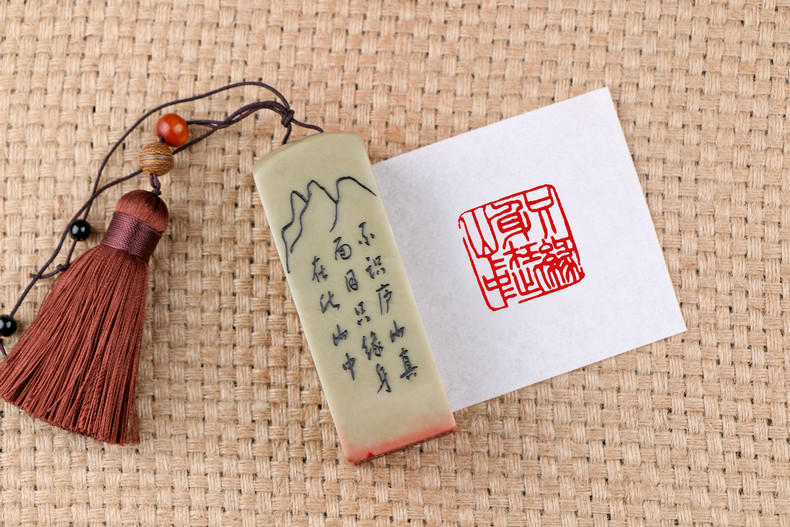 不识庐山真
面目只缘身
在此山中
只緣
身在此
山中